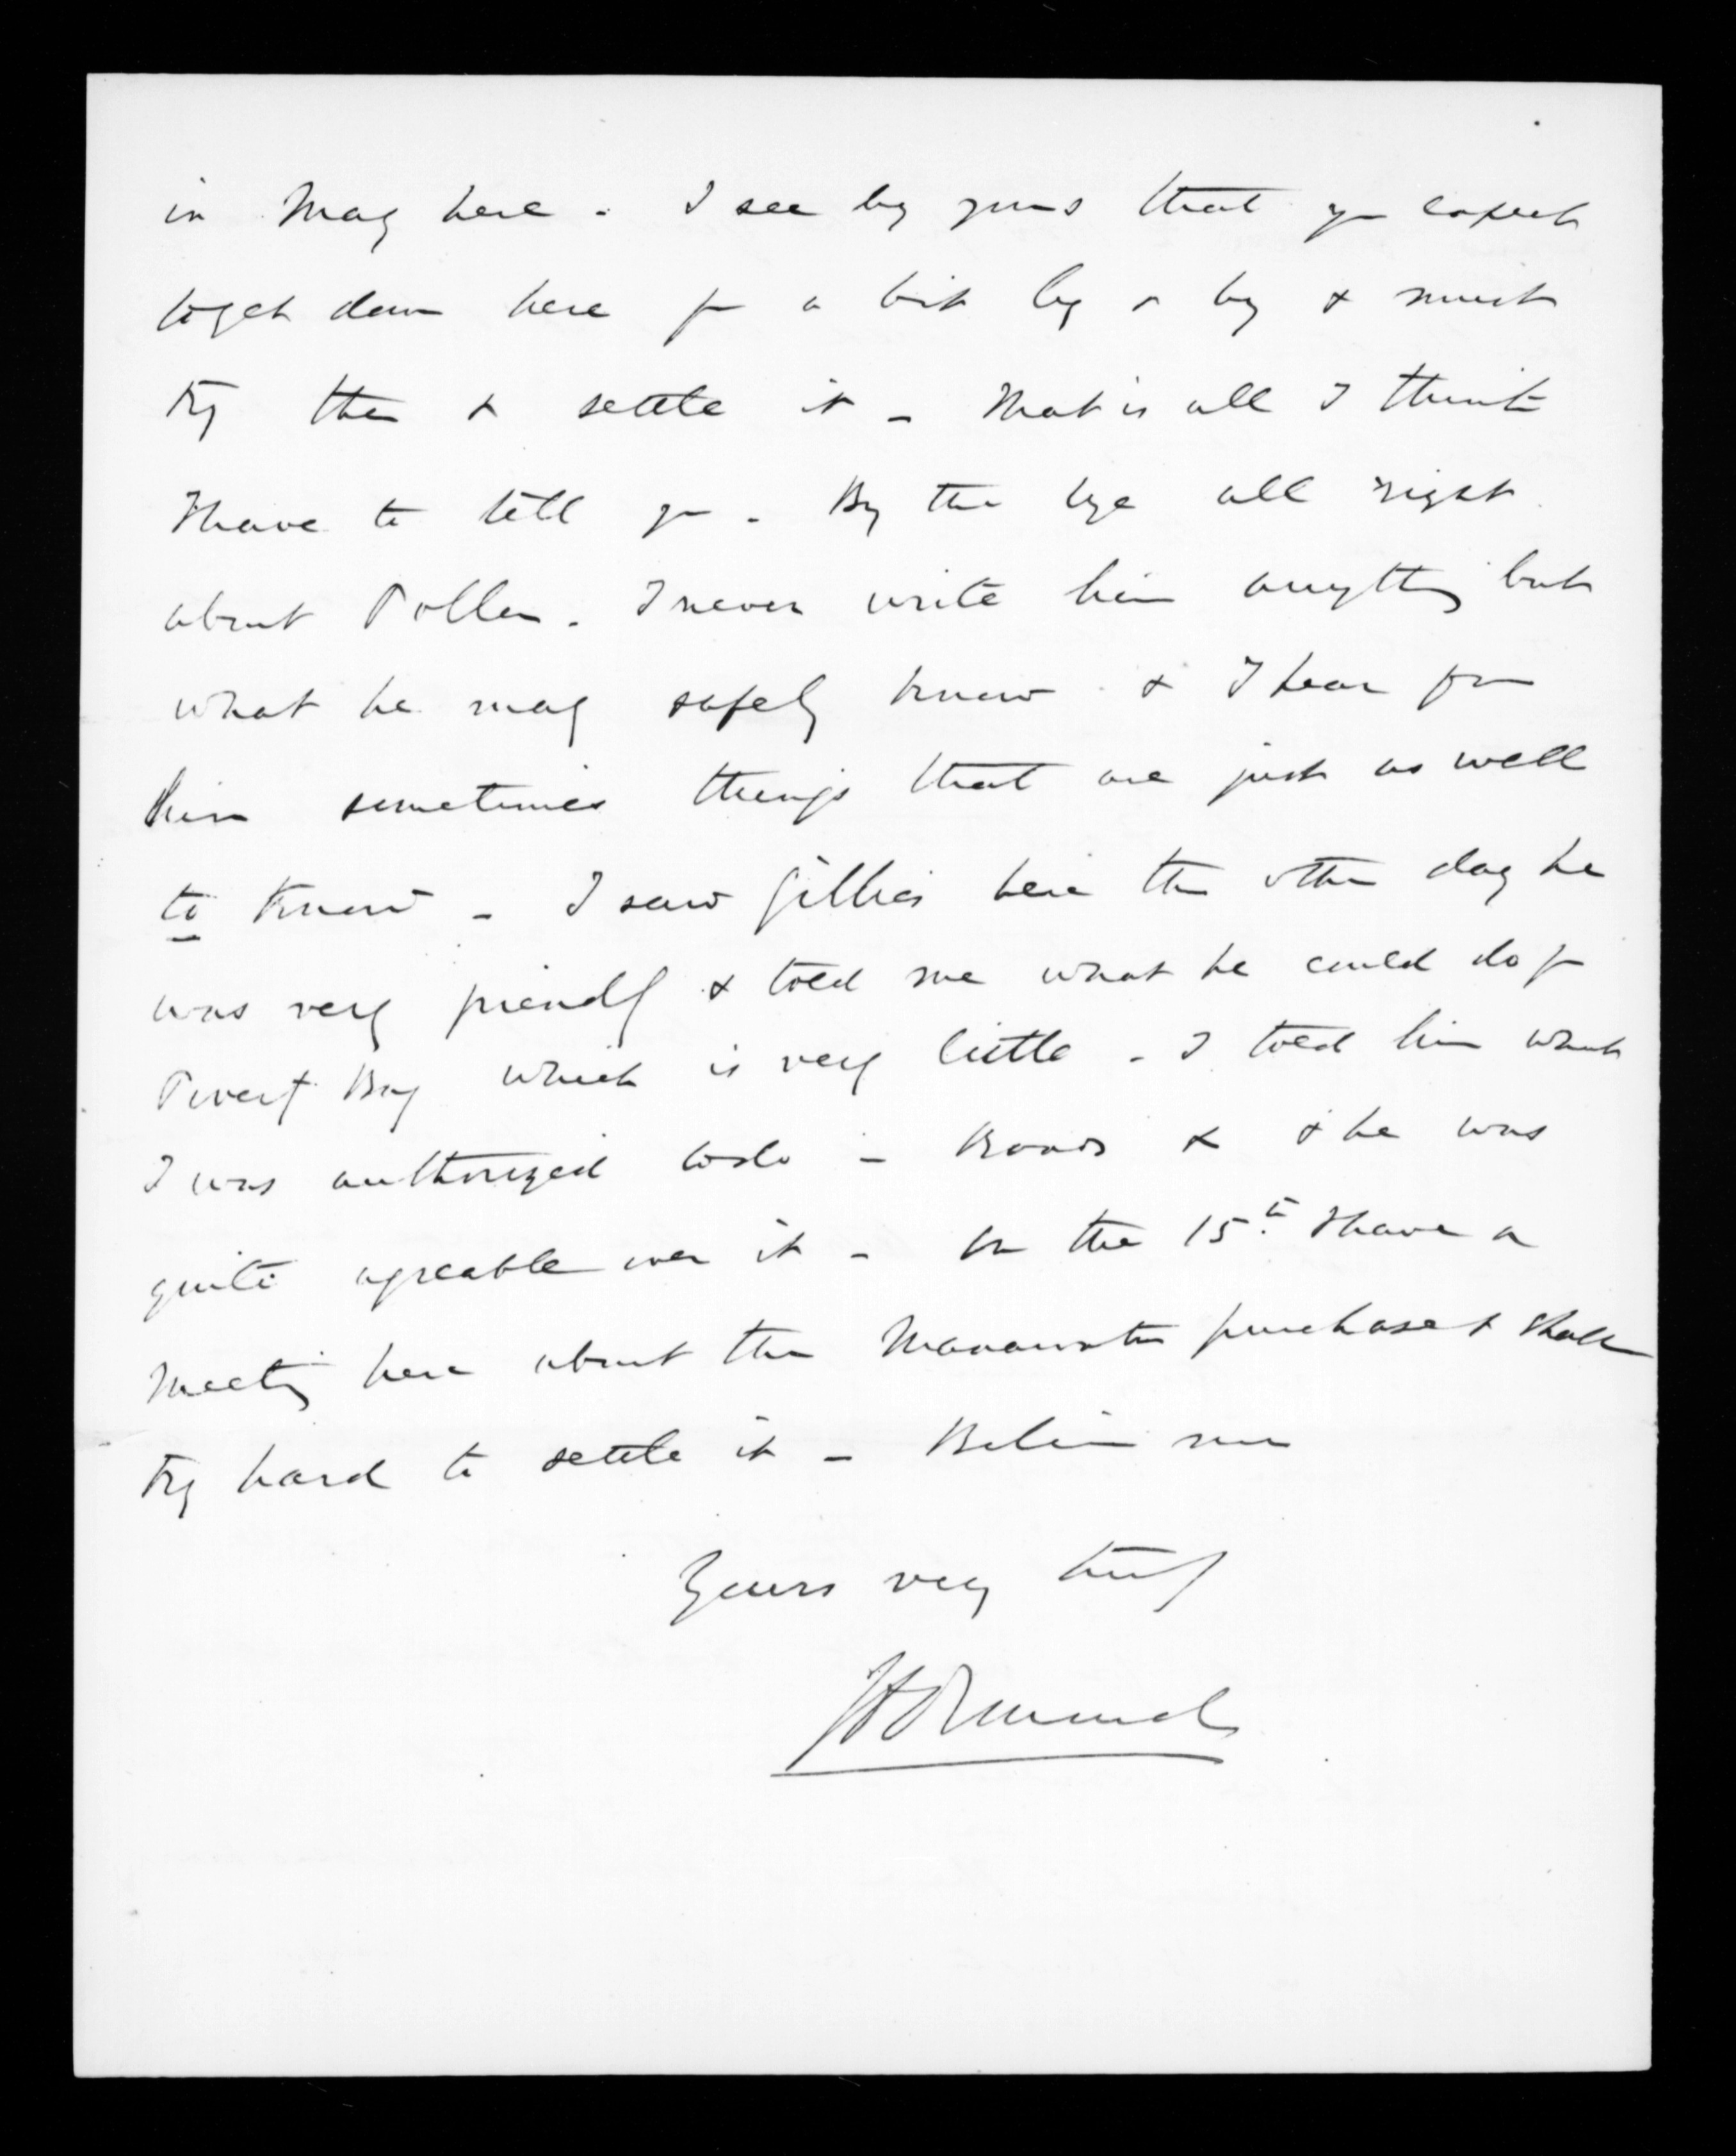 in May here - I see by yours that you expect
to get down here for a bit by & by & must
try then & settle it - That is all I think
I have to tell you - By the bye all right
about Pollen. I never write him anything but
what he may safely know & I hear from
him sometimes things that are just as well
to know - I saw Gillies here the other day he
was very friendly & told me what he could do for
Poverty Bay which is very little - I told him what
I was authorized to do - Roads & & he was
quite agreable over it - On the 15th I have a
meeting here about the Manawatu purchase & shall
try hard to settle it - Believe me
Yours very truly
J H Ormond